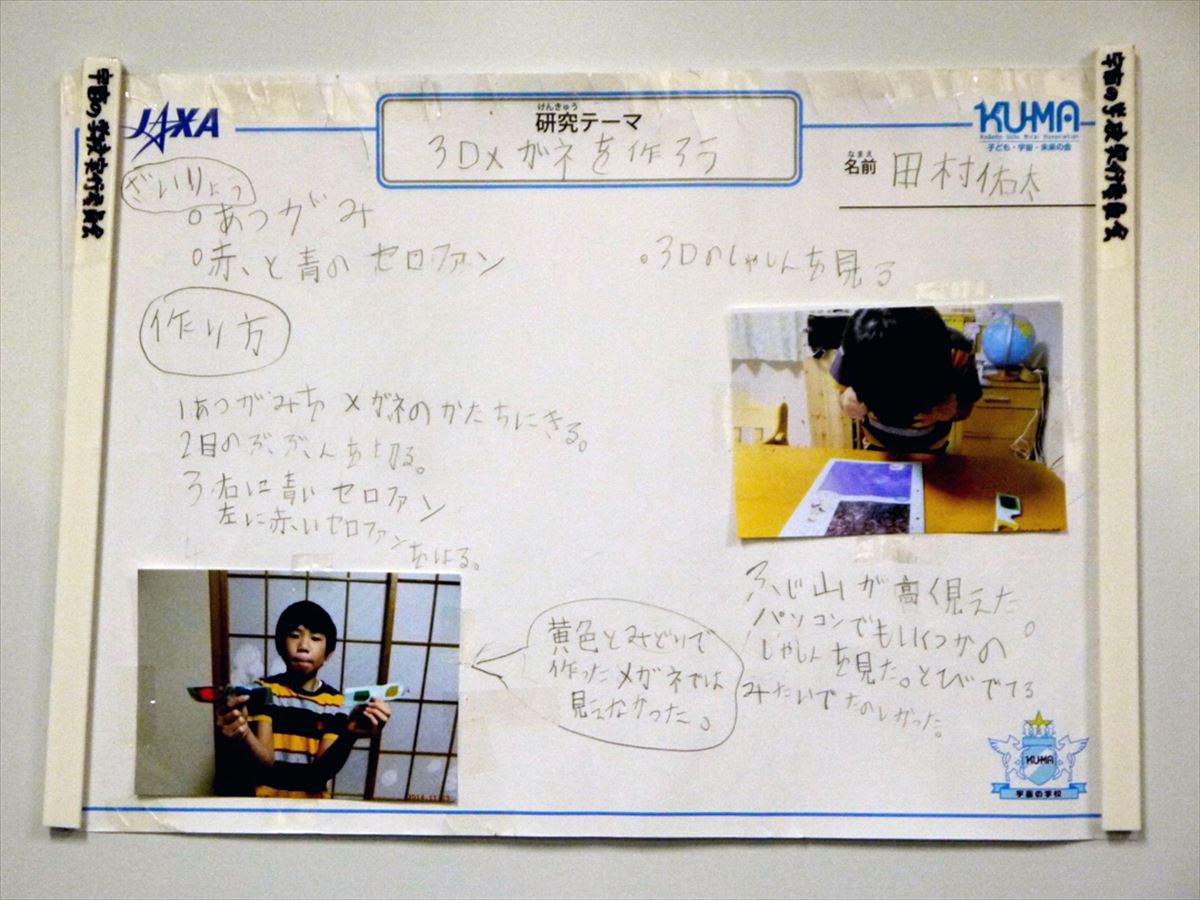 宇宙の学校実行委員会
宇宙の学校実行委員会
JAXA
けんきゅう
研究テーマ
3Dメガネを作ろう
KU-MA
子ども・宇宙・未来の会
なまえ
名前 田村佑太
ざいりょう
○あつがみ
○赤いと青のセロファン
作り方
1あつがみをメガネのかたちにきる。
2目のぶぶんを切る。
3.右に青いセロファン
左に赤いセロファン
をはる。
。3Dのしゃしんを見る
ふじ山が高く見えた。
パソコンでもいくつかの
しゃしんを見た。とびでてる
みたいでたのしかった。
黄色とみどりで
作ったメガネでは
見えなかった。
KU-MA
宇宙の学校